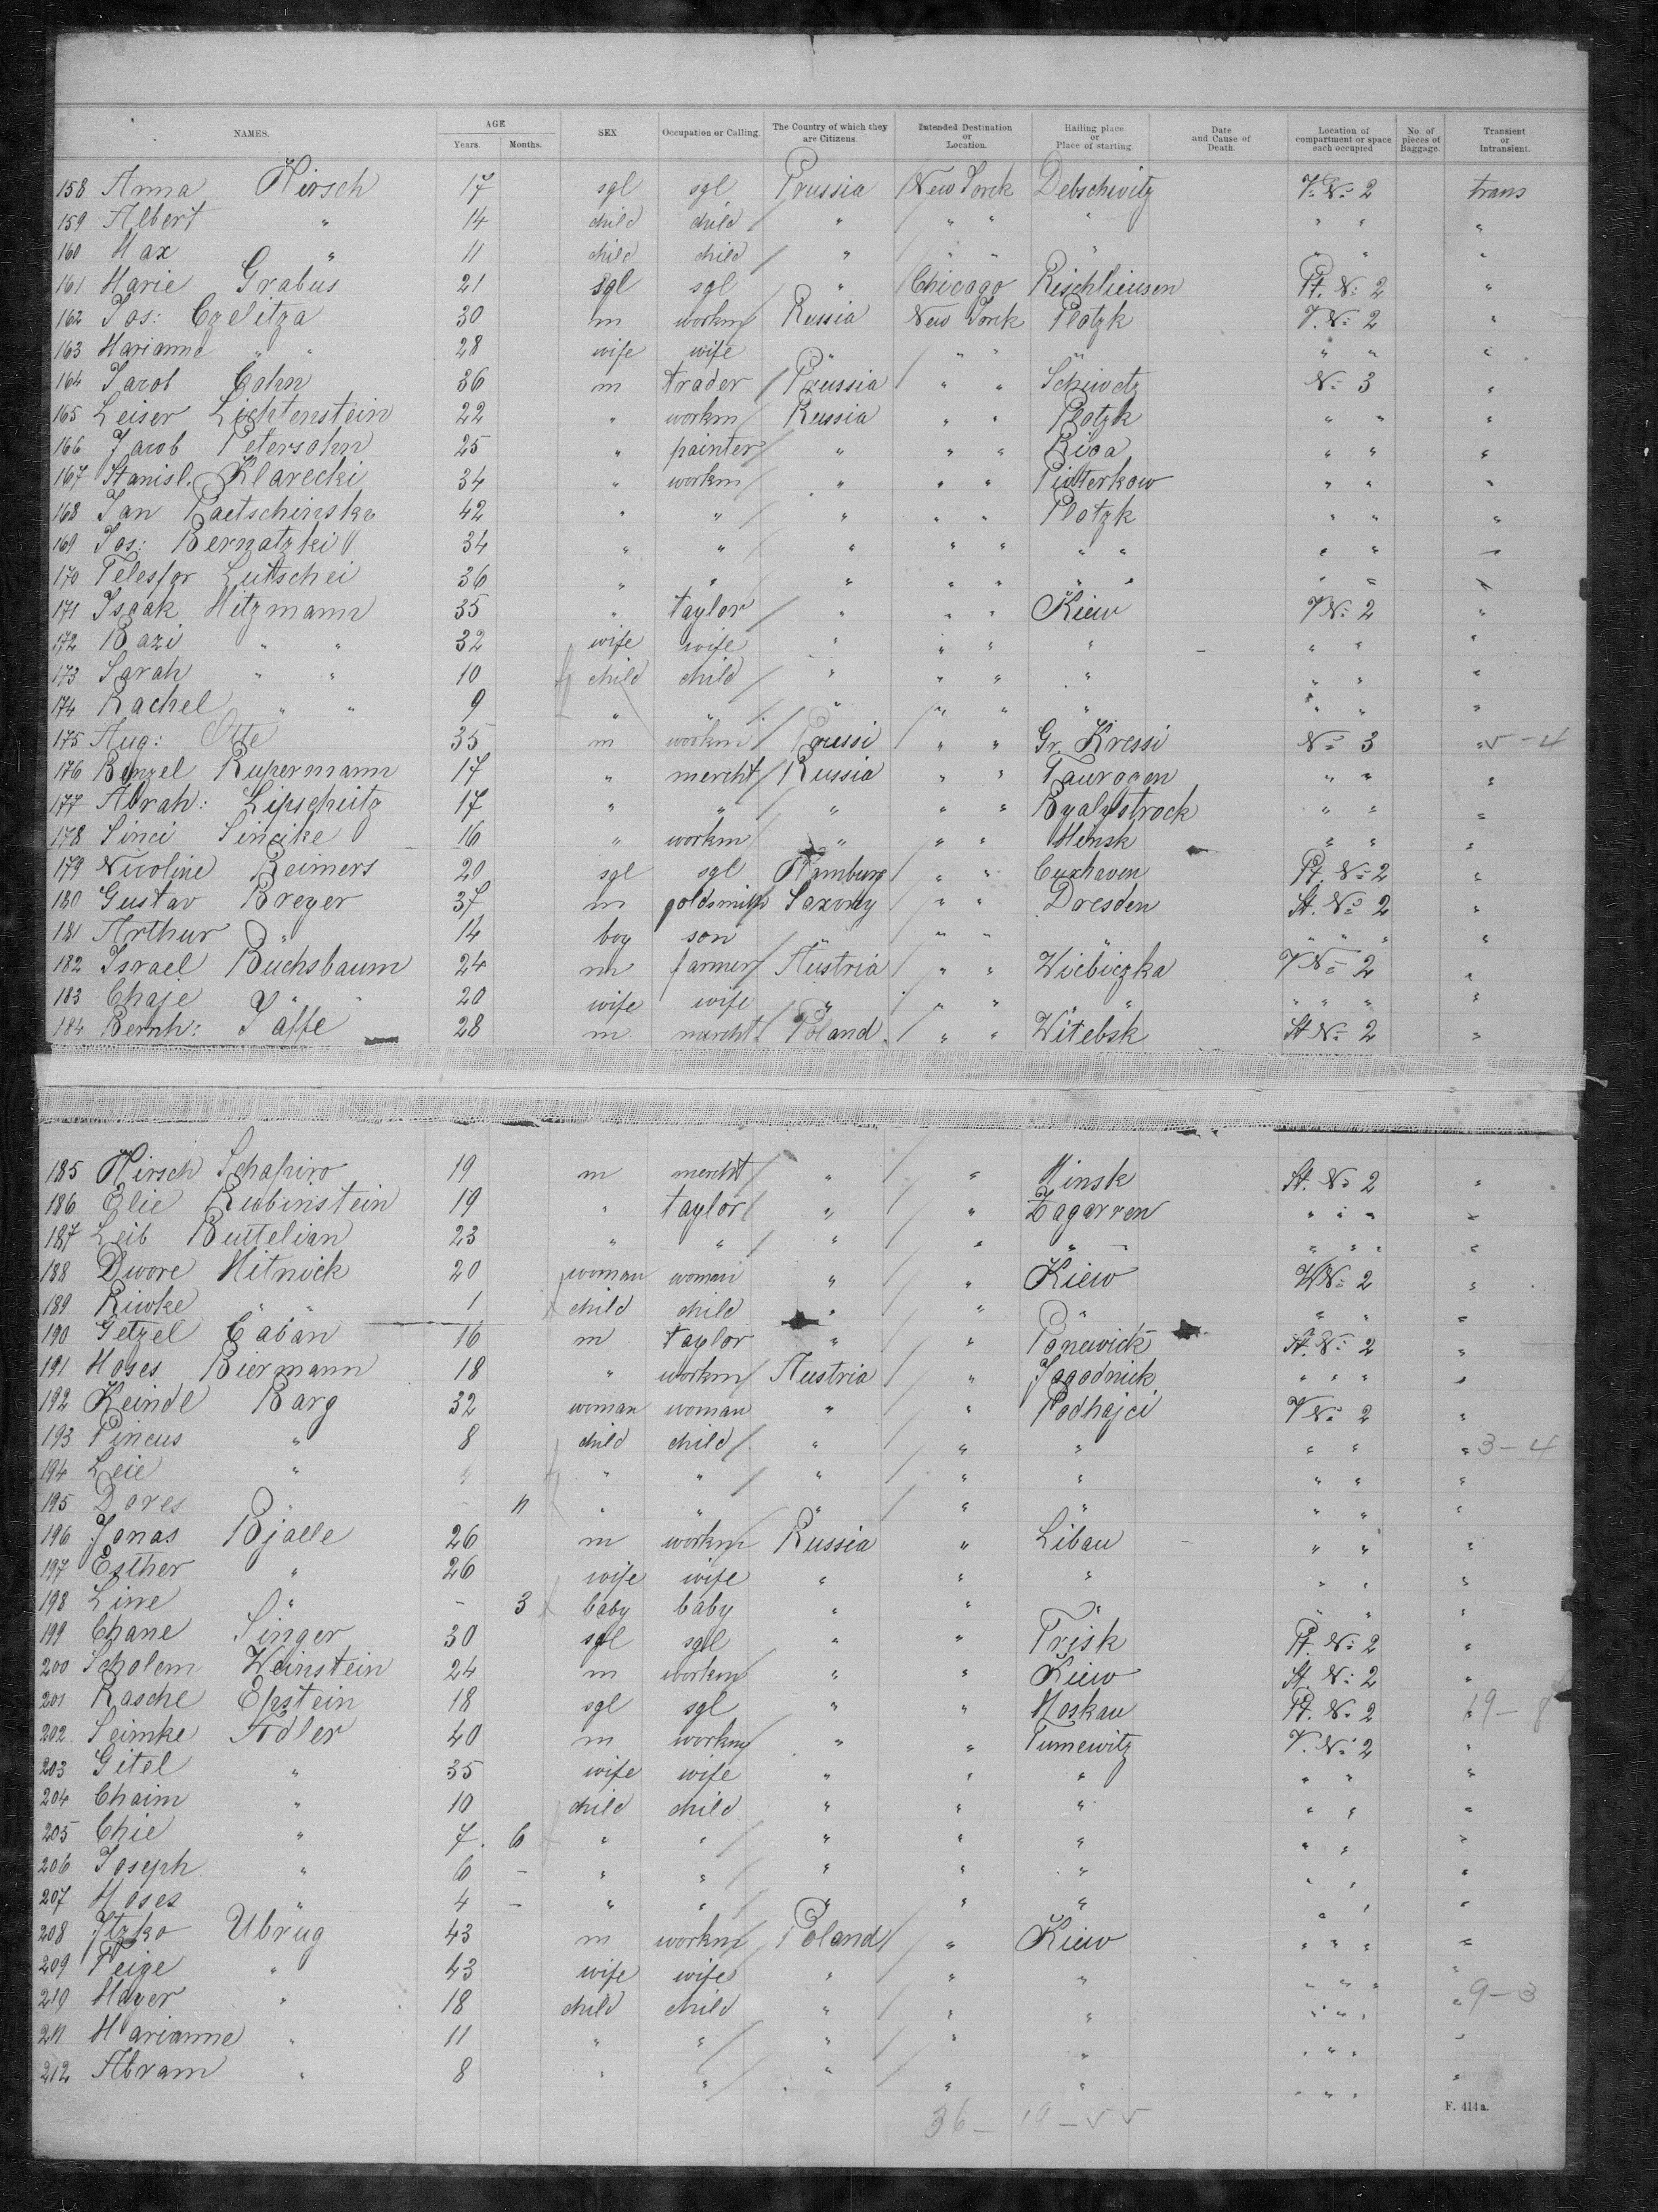 NAMES. AGE Years. Months. SEX Occupation or Calling. The Country of which they are Citizens. Intended Destination or Location. Hailing place or Place of starting. Date and Cause of Death. Location of compartment or space each occupied No. of pieces of Baggage. Transient or Intransient.
158 Anna Hirsch 17 sgl sgl Prussia New Yorck Debschwitz V. No 2 trans
159 Albert " 14 child child " " " " " " "
160 Max " 11 child child " " " " " " "
161 Marie Grabus 21 sgl sgl " Chicago Rischlieusen Pt. No 2 "
162 Jos: Czelitza 30 m workm Russia New Yorck Plotzk V. No 2 "
163 Marianne " " 28 wife wife " " " " " " "
164 Jacob Cohn 36 m trader Prussia " " Schwetz No 3 "
165 Leiser Lichtenstein 22 " workm Russia " " Plotzk " " "
166 Jacob Petersohn 25 " painter " " " Riga " " "
167 Stanisl. Klarecki 34 " workm " " " Piotterkow " " "
168 Jan Raetschinska 42 " " " " " Plotzk " " "
169 Jos: Bernatzki 34 " " " " " " " " " "
170 Telesfor Lutschei 36 " " " " " " " " " "
171 Isaak Mitzmann 35 " taylor " " " Kiew V No 2 "
172 Bazi " " 32 wife wife " " " " " " "
173 Sarah " " 10 child child " " " " " " "
174 Rachel " " 9 " " " " " " " " "
175 Aug: Otte 35 m workm Prussi " " Gr. Kressi No 3 " 5-4
176 Benzel Rupermann 17 " mercht Russia " " Tauroggen " " "
177 Abrah: Lipschütz 17 " " " " " Byalystrock " " "
178 Sinci Sincike 16 " workm " " " Minsk " " "
179 Nicoline Reimers 20 sgl sgl Hamburg " " Cuxhaven Pt. No 2 "
180 Gustav Breyer 37 m goldsmith Saxony " " Dresden St. No 2 "
181 Arthur " 14 boy son " " " " " " " "
182 Israel Buchsbaum 24 m farmer Austria " " Wiebiczka V No 2 "
183 Chaje " " 20 wife wife " " " " " " " "
184 Bernh: Jaffe 28 m mercht Poland " " Witebsk St No 2 "
185 Hirsch Schapiro 19 m mercht " " Minsk St. No 2 "
186 Elie Rubinstein 19 " taylor " " Zagarren " " " "
187 Leib Buttelian 23 " " " " " " " " " "
188 Dwore Mitnick 20 woman woman " " Kiew V No 2 "
189 Riwke " " 1 child child " " " " " "
190 Getzel Caban 16 m taylor " " Ponewick St. No 2 "
191 Moses Biermann 18 " workm Austria " Jagodnick " " " "
192 Keindl Barg 32 woman woman " " Podhajci V No 2 "
193 Pincus " 8 child child " " " " " " 3-4
194 Leie " " " " " " " " "
195 Dores " - 11 " " " " " " " "
196 Jonas Bjalle 26 m workm Russia " Libau " " "
197 Esther " 26 wife wife " " " " " "
198 Line " - 3 baby baby " " " " " "
199 Chane Singer 30 sgl sgl " " Trisk Pt. No 2 "
200 Scholem Weinstein 24 m workm " " Kiew St. No 2 "
201 Rasche Epstein 18 sgl sgl " " Moskau Pt. No 2 " 19-8
202 Seimke Adler 40 m workm " " Tumewitz V. No 2 "
203 Gitel " 35 wife wife " " " " " "
204 Chaim " 10 child child " " " " " "
205 Chie " 7. 6 " " " " " " " "
206 Joseph " 6 - " " " " " " " "
207 Moses " 4 - " " " " " " " "
208 Itzko Ubrug 43 m workm Poland " Kiew " " " "
209 Feige " 43 wife wife " " " " " " "
210 Mayer " 18 child child " " " " " " " 9-3
211 Marianne " 11 " " " " " " " " "
212 Abram " 8 " " " " " " " " "
36- 19-55
F. 414a.